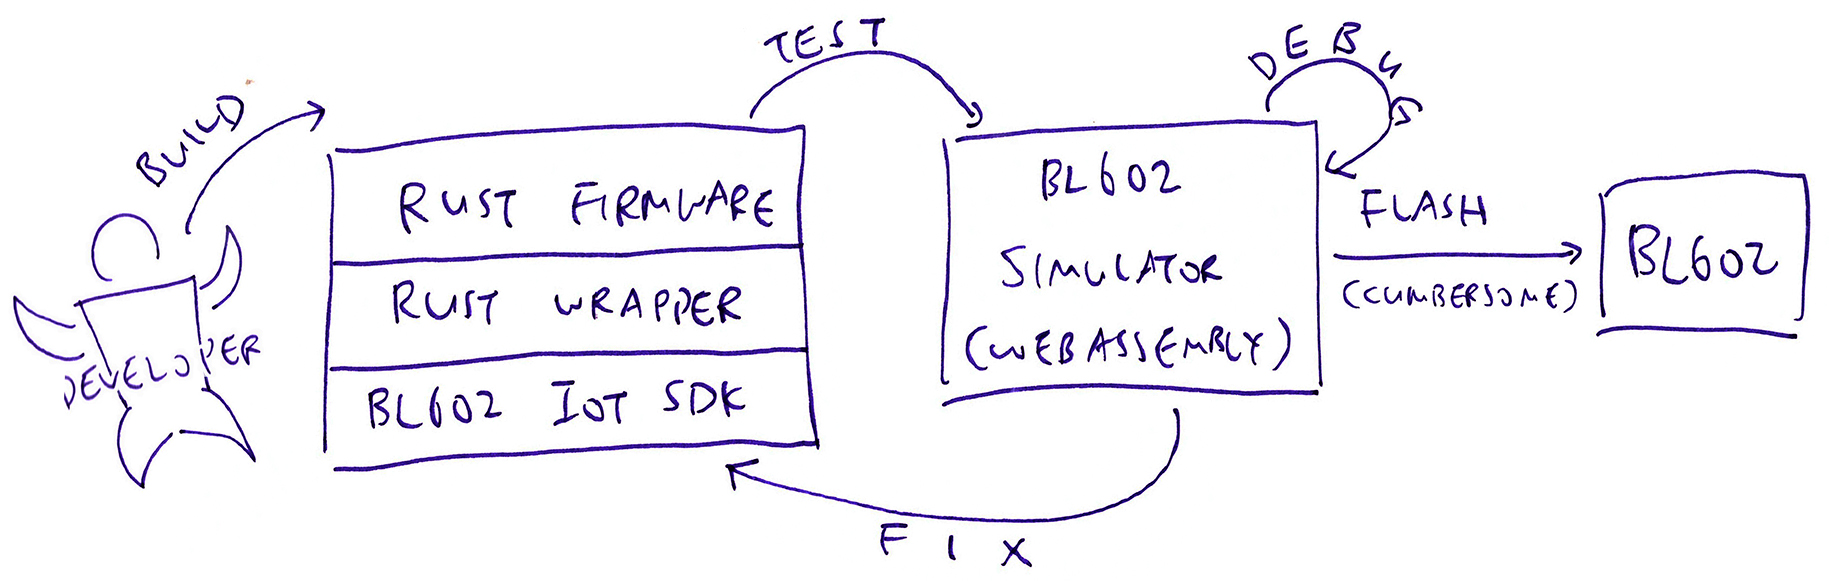 BUILD
DEVELOPER
RUST FIRMWARE
RUST WRAPPER
BL602 IOT SDK
TEST
BL602
SIMULATOR
(WEBASSEMBLY)
DEBUG
FIX
FLASH
(CUMBERSOME)
BL602